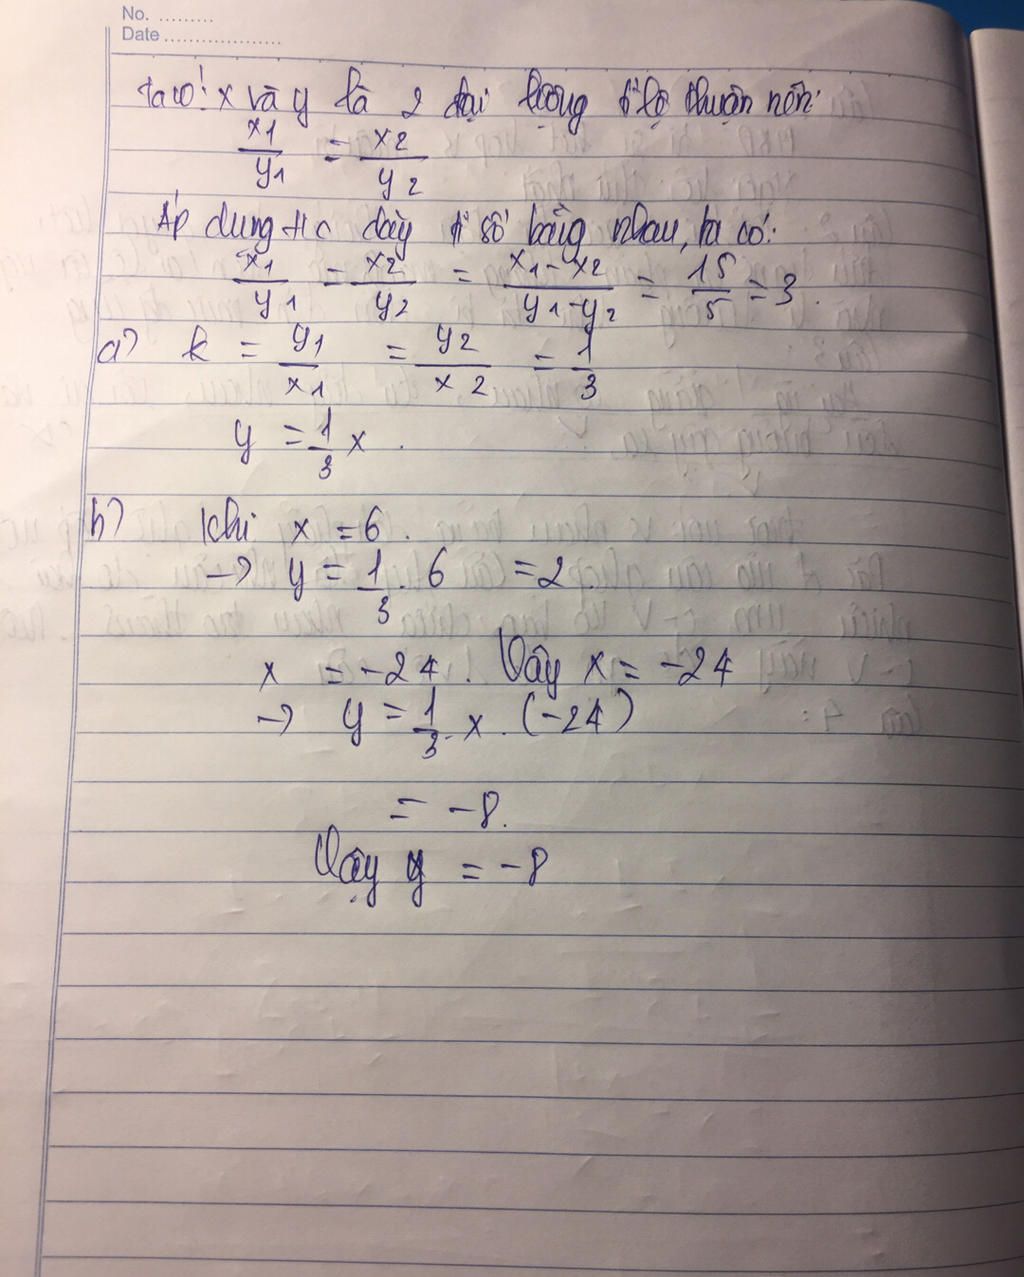 No. .........
Date ...................
ta có: x và y là 2 đại lượng tỉ lệ thuận nên:
x1/y1 = x2/y2
Áp dụng t/c dãy tỉ số bằng nhau, ta có:
x1/y1 = x2/y2 = x1-x2/y1-y2 = 15/5 = 3.
a) k = y1/x1 = y2/x2 = 1/3
y = 1/3 x.
b) Khi x = 6.
→ y = 1/3 . 6 = 2
x = -24. Vậy x = -24
→ y = 1/3 . x . (-24)
= -8.
Vậy y = -8